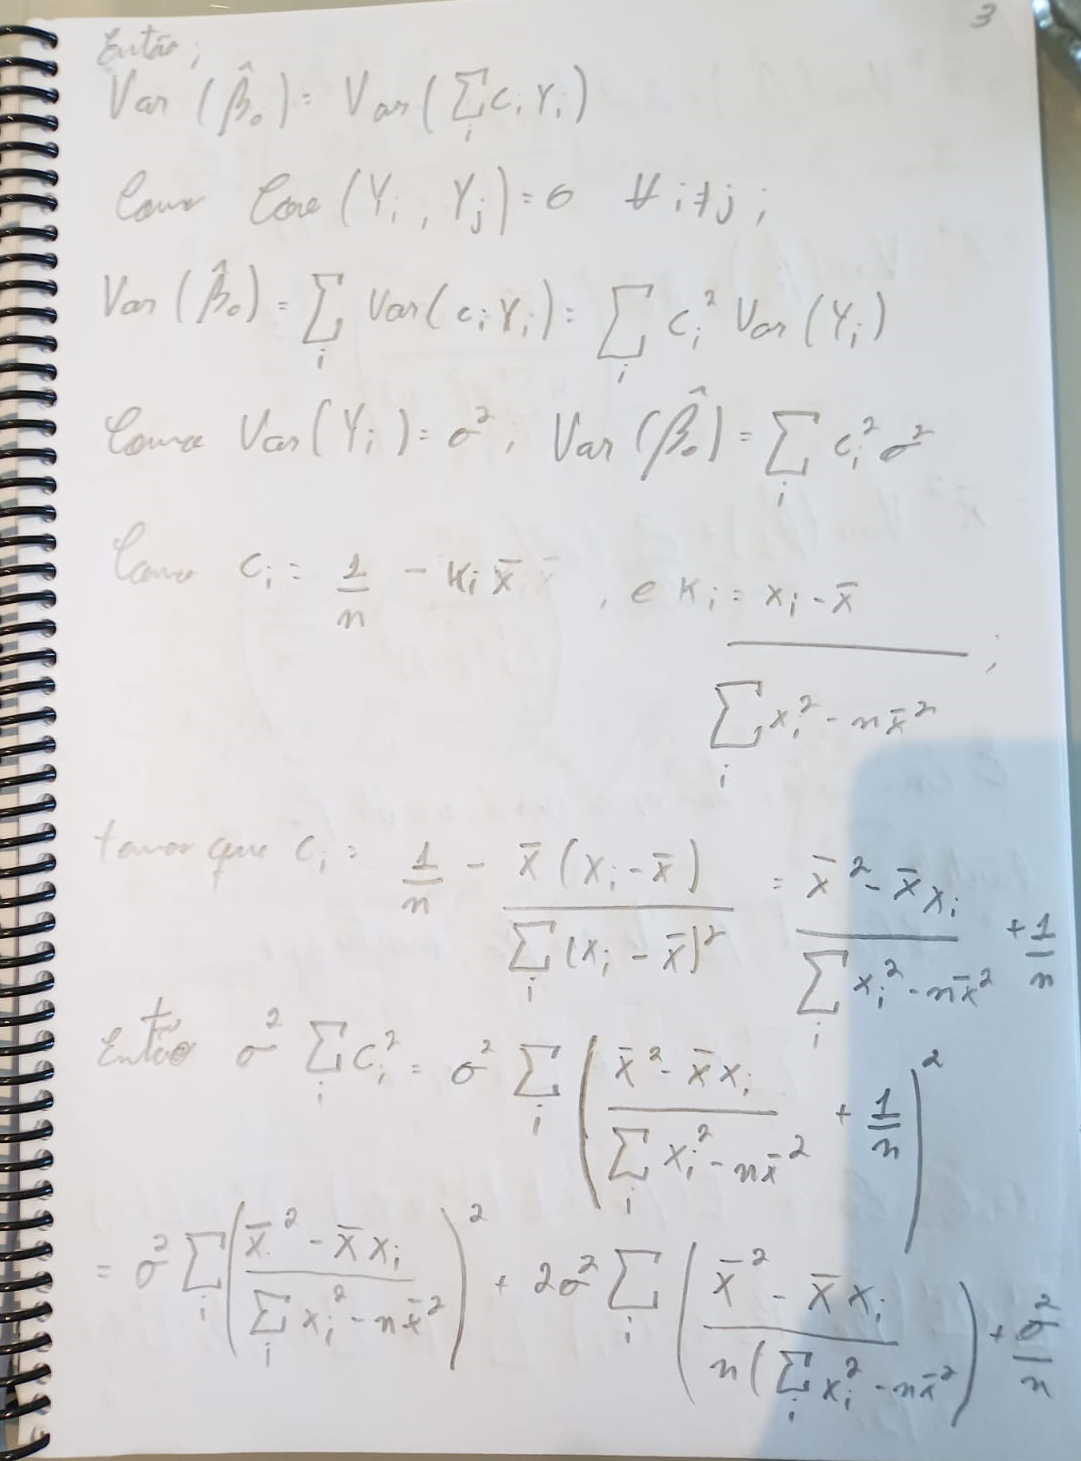 3
Então;
Var(β̂₀) = Var(∑ᵢ cᵢYᵢ)
Como Cov(Yᵢ, Yⱼ) = 0 ∀ i≠j;
Var(β̂₀) = ∑ᵢ Var(cᵢYᵢ) = ∑ᵢ cᵢ² Var(Yᵢ)
Como Var(Yᵢ) = σ², Var(β̂₀) = ∑ᵢ cᵢ² σ²
Como cᵢ = 1/n - kᵢ x̄, e kᵢ = (xᵢ - x̄)/(∑ᵢ xᵢ² - n x̄²);
temos que cᵢ = 1/n - x̄(xᵢ - x̄)/∑ᵢ(xᵢ - x̄)² = (x̄² - x̄xᵢ)/(∑ᵢ xᵢ² - n x̄²) + 1/n
Então σ² ∑ᵢ cᵢ² = σ² ∑ᵢ ((x̄² - x̄xᵢ)/(∑ᵢ xᵢ² - n x̄²) + 1/n)²
= σ² ∑ᵢ ((x̄² - x̄xᵢ)/(∑ᵢ xᵢ² - n x̄²))² + 2σ² ∑ᵢ ((x̄² - x̄xᵢ)/(n(∑ᵢ xᵢ² - n x̄²)) + σ²/n